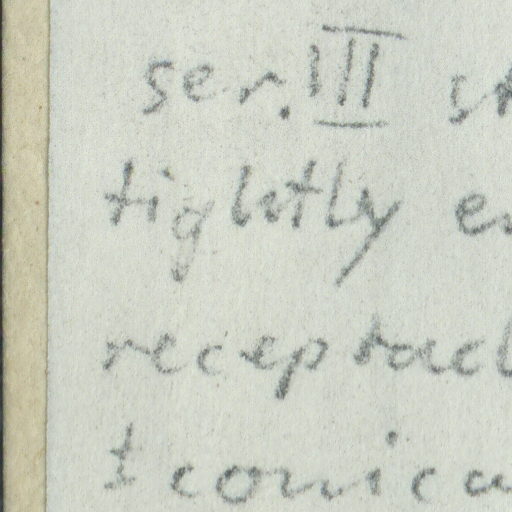 ser. III st
tightly en
receptacl
± conica